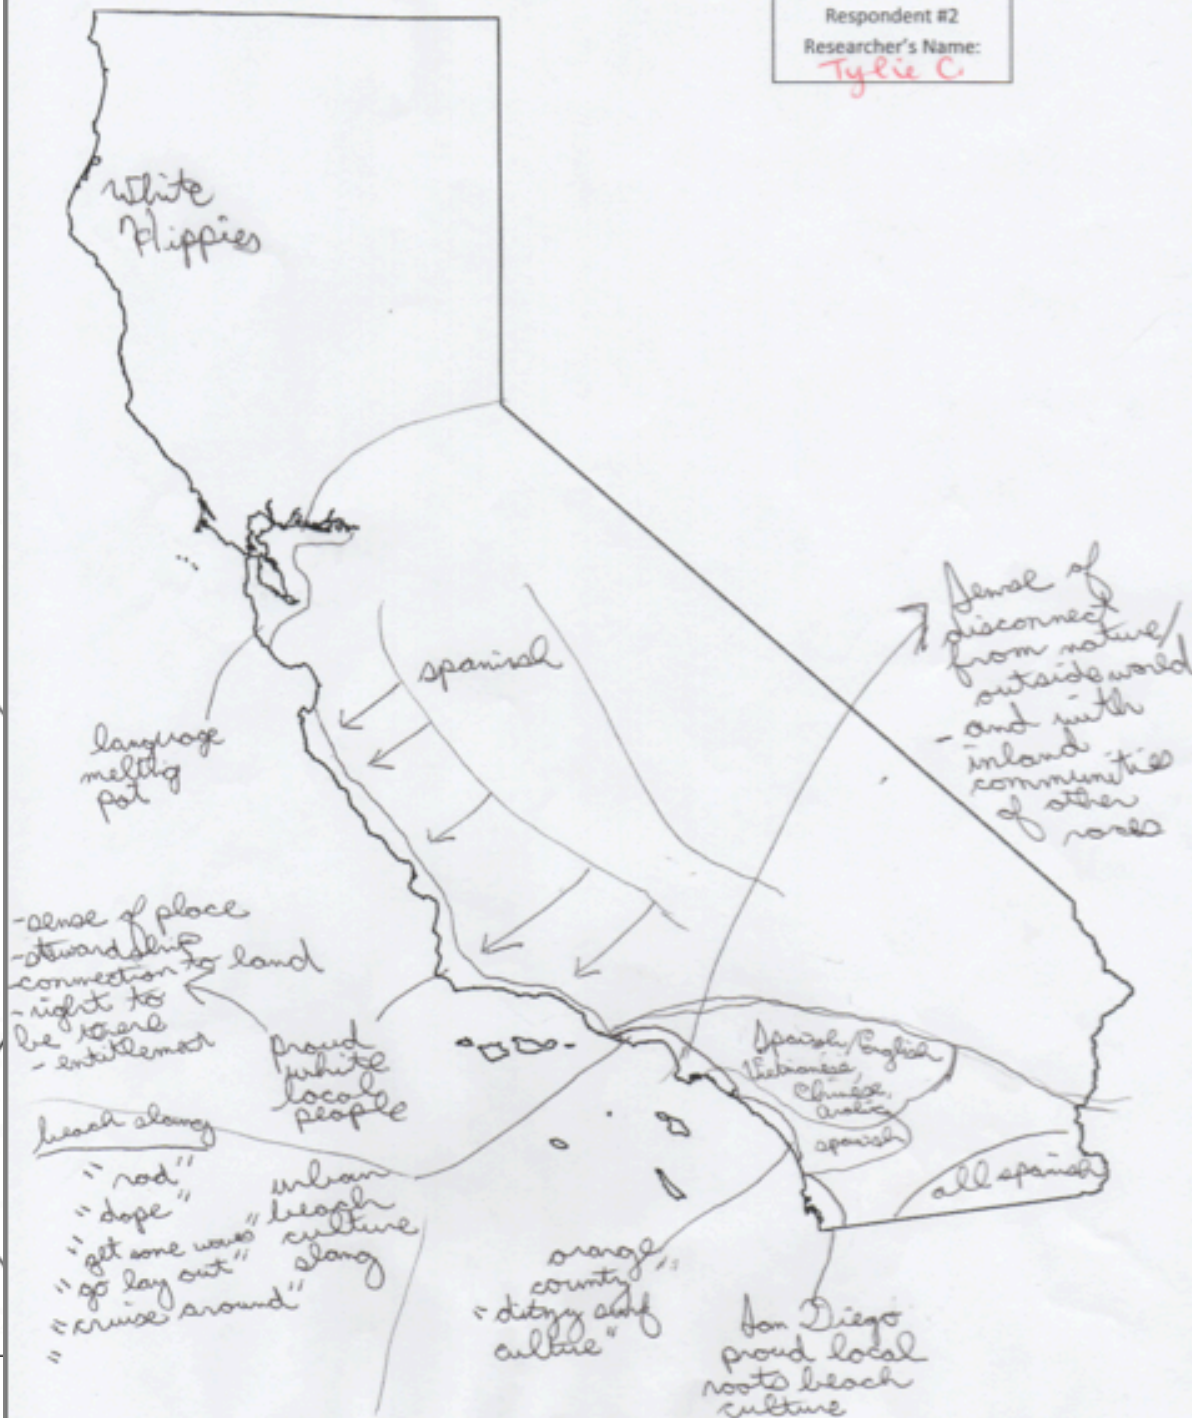 Respondent #2
Researcher's Name:
Tylie C.
White
Hippies
spanish
language
meltig
pot
Sense of
disconnect
from nature/
outside world
- and with
inland
communities
of other
races
-sense of place
-stewardship
-connection to land
-right to
be there
- entitlement
proud
white
local
people
Spanish/English
Vietnamese,
Chinese,
arabic
spanish
all spanish
beach slang
"rad"
"dope"
"get some waves"
"go lay out"
"cruise around"
"
urban
beach
culture
slang
orange
county
"ditzy surf
culture"
San Diego
proud local
roots beach
culture